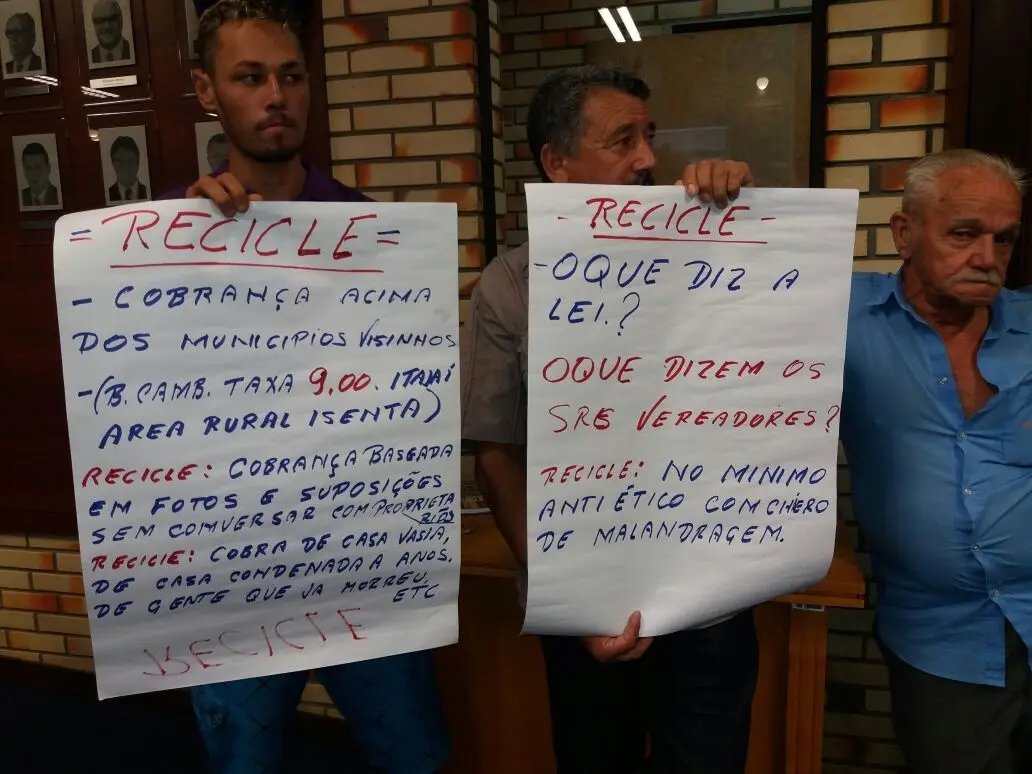 = RECICLE =
- COBRANÇA ACIMA
DOS MUNICIPIOS VISINHOS
- (B. CAMB. TAXA 9,00. ITAJAÍ
AREA RURAL ISENTA)
RECICLE: COBRANÇA BASEADA
EM FOTOS E SUPOSIÇÕES
SEM COMVERSAR COM PROPRIETA
RIOS
RECICLE: COBRA DE CASA VASIA,
DE CASA CONDENADA A ANOS.
DE GENTE QUE JA MORREU.
ETC
RECICLE
- RECICLE -
- OQUE DIZ A
LEI.?
OQUE DIZEM OS
SRS VEREADORES?
RECICLE: NO MINIMO
ANTI ÉTICO COM CHERO
DE MALANDRAGEM.